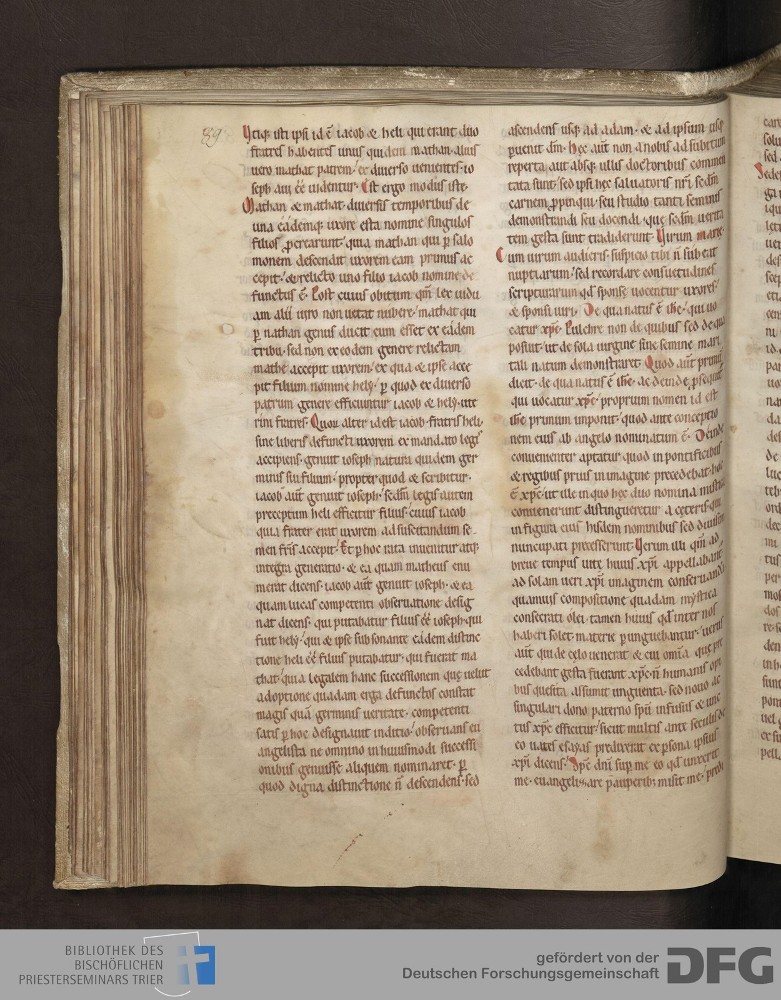 89
Utiq; isti ipsi id ē iacob & heli qui erant duo
fratres habentes unus quidem mathan alius
uero mathat patrem. & diuerso uenientes io
seph aui eē uidentur. Est ergo modus iste.
Mathan & mathat. diuersis temporibus de
una eademq; uxore esta nomine singulos
filios procrearunt. quia mathan qui p̱ salo
monem descendit uxorem eam primus ac
cepit. & relicto uno filio iacob nomine de
functus ē. Post cuius obitum qm̄ lex uidu
am alii uiro non uetat nubere. mathat qui
p̱ nathan genus ducit cum esset ex eadem
tribu. sed non ex eodem genere relictam
mathe accepit uxorem. ex qua & ipse acce
pit filium nomine hely. p̱ quod ex diuerso
patrum genere efficiuntur iacob & hely. ute
rini fratres. Quoꝝ alter id est iacob. fratris heli.
sine liberis defuncti uxorem ex mandato legis
accipiens. genuit ioseph natura quidem ger
minis sui filium. propter quod & scribitur.
iacob aut̄ genuit ioseph. sedm̄ legis autem
preceptum heli efficitur filius. cuius iacob
quia frater erat uxorem ad suscitandum se
men fr̄is accepit. Et p̱ hoc rata inuenitur atq;
integra generatio. & ea quam matheus enu
merat dicens. iacob aut̄ genuit ioseph. & ea
quam lucas competenti obseruatione desig
nat dicens. qui putabatur filius eē ioseph. qui
fuit hely. qui & ipse subsonante eadem distinc
tione heli eē filius putabatur. qui fuerat ma
that. quia legalem hanc successionem quę uelut
adoptione quadam erga defunctos constat
magis quā germinis ueritate. competenti
satis p̱ hoc designauit inditio. obseruans eu
angelista ne omnino in huiusmodi successi
onibus genuisse aliquem nominaret. p̱
quod digna distinctione n̄ descendens. sed
ascendens usq; ad adam. & ad ipsum usq;
p̱uenit dm̄. Hęc aut̄ non a nobis ad subitum
reperta aut absq; ullis doctoribus commen
tata sunt. sed ipsi hęc saluatoris nr̄i sedm̄
carnem p̱pinqui. seu studio tanti seminis
demonstrandi seu docendi. quę sedm̄ uerita
tem gesta sunt tradiderunt. Uirum marie.
Cum uirum audieris. suspicio tibi n̄ subeat
nuptiarum. sed recordare consuetudines
scripturarum qd̄ sponse uocentur uxores.
& sponsi uiri. De qua natus ē ihc̄. qui uo
catur xpc̄. Pulchre non de quibus sed de qua
posuit. ut de sola uirgine sine semine mari
tali natum demonstraret. Quod aut̄ primū
dicit. de qua natus ē ihc̄. ac deinde p̱sequit
qui uocatur xpc̄. proprium nomen id est
ihc̄ primum imponit. quod ante conceptio
nem eius ab angelo nominatum ē. Deinde
conuenienter aptatur quod in pontificibus
& regibus prius in imagine precedebat. hoc
ē xpc̄. ut ille in quo hęc duo nomina
conuenerunt distingueretur a ceteris. qui
in figura eius hisdem nominibus sed diuisim
nuncupati precesserunt. Uerum illi qm̄ ad
breue tempus uitę huius xpi appellabant
ad solam ueri xpi imaginem conseruandā
quamuis compositione quadam mystica
consecrati olei. tamen huius qd̄ inter nos
haberi solet. materie p̱unguebantur. uerus
aut̄ qui de cęlo uenerat & cui om̄ia quę pre
cedebant gesta fuerant xpc̄. n̄ humanis opi
bus quesita assumit unguenta. sed nouo ac
singulari dono paterno spū infusus & unc
tus xpc̄ efficitur. sicut multis ante seculis de
eo uates esayas predixerat ex persona ipsius
xpi dicens. Spc̄ dnī sup̱ me eo qd̄ unxerit
me. euangelizare pauperib; misit me. predi
BIBLIOTHEK DES
BISCHÖFLICHEN
PRIESTERSEMINARS TRIER
gefördert von der
Deutschen Forschungsgemeinschaft
DFG